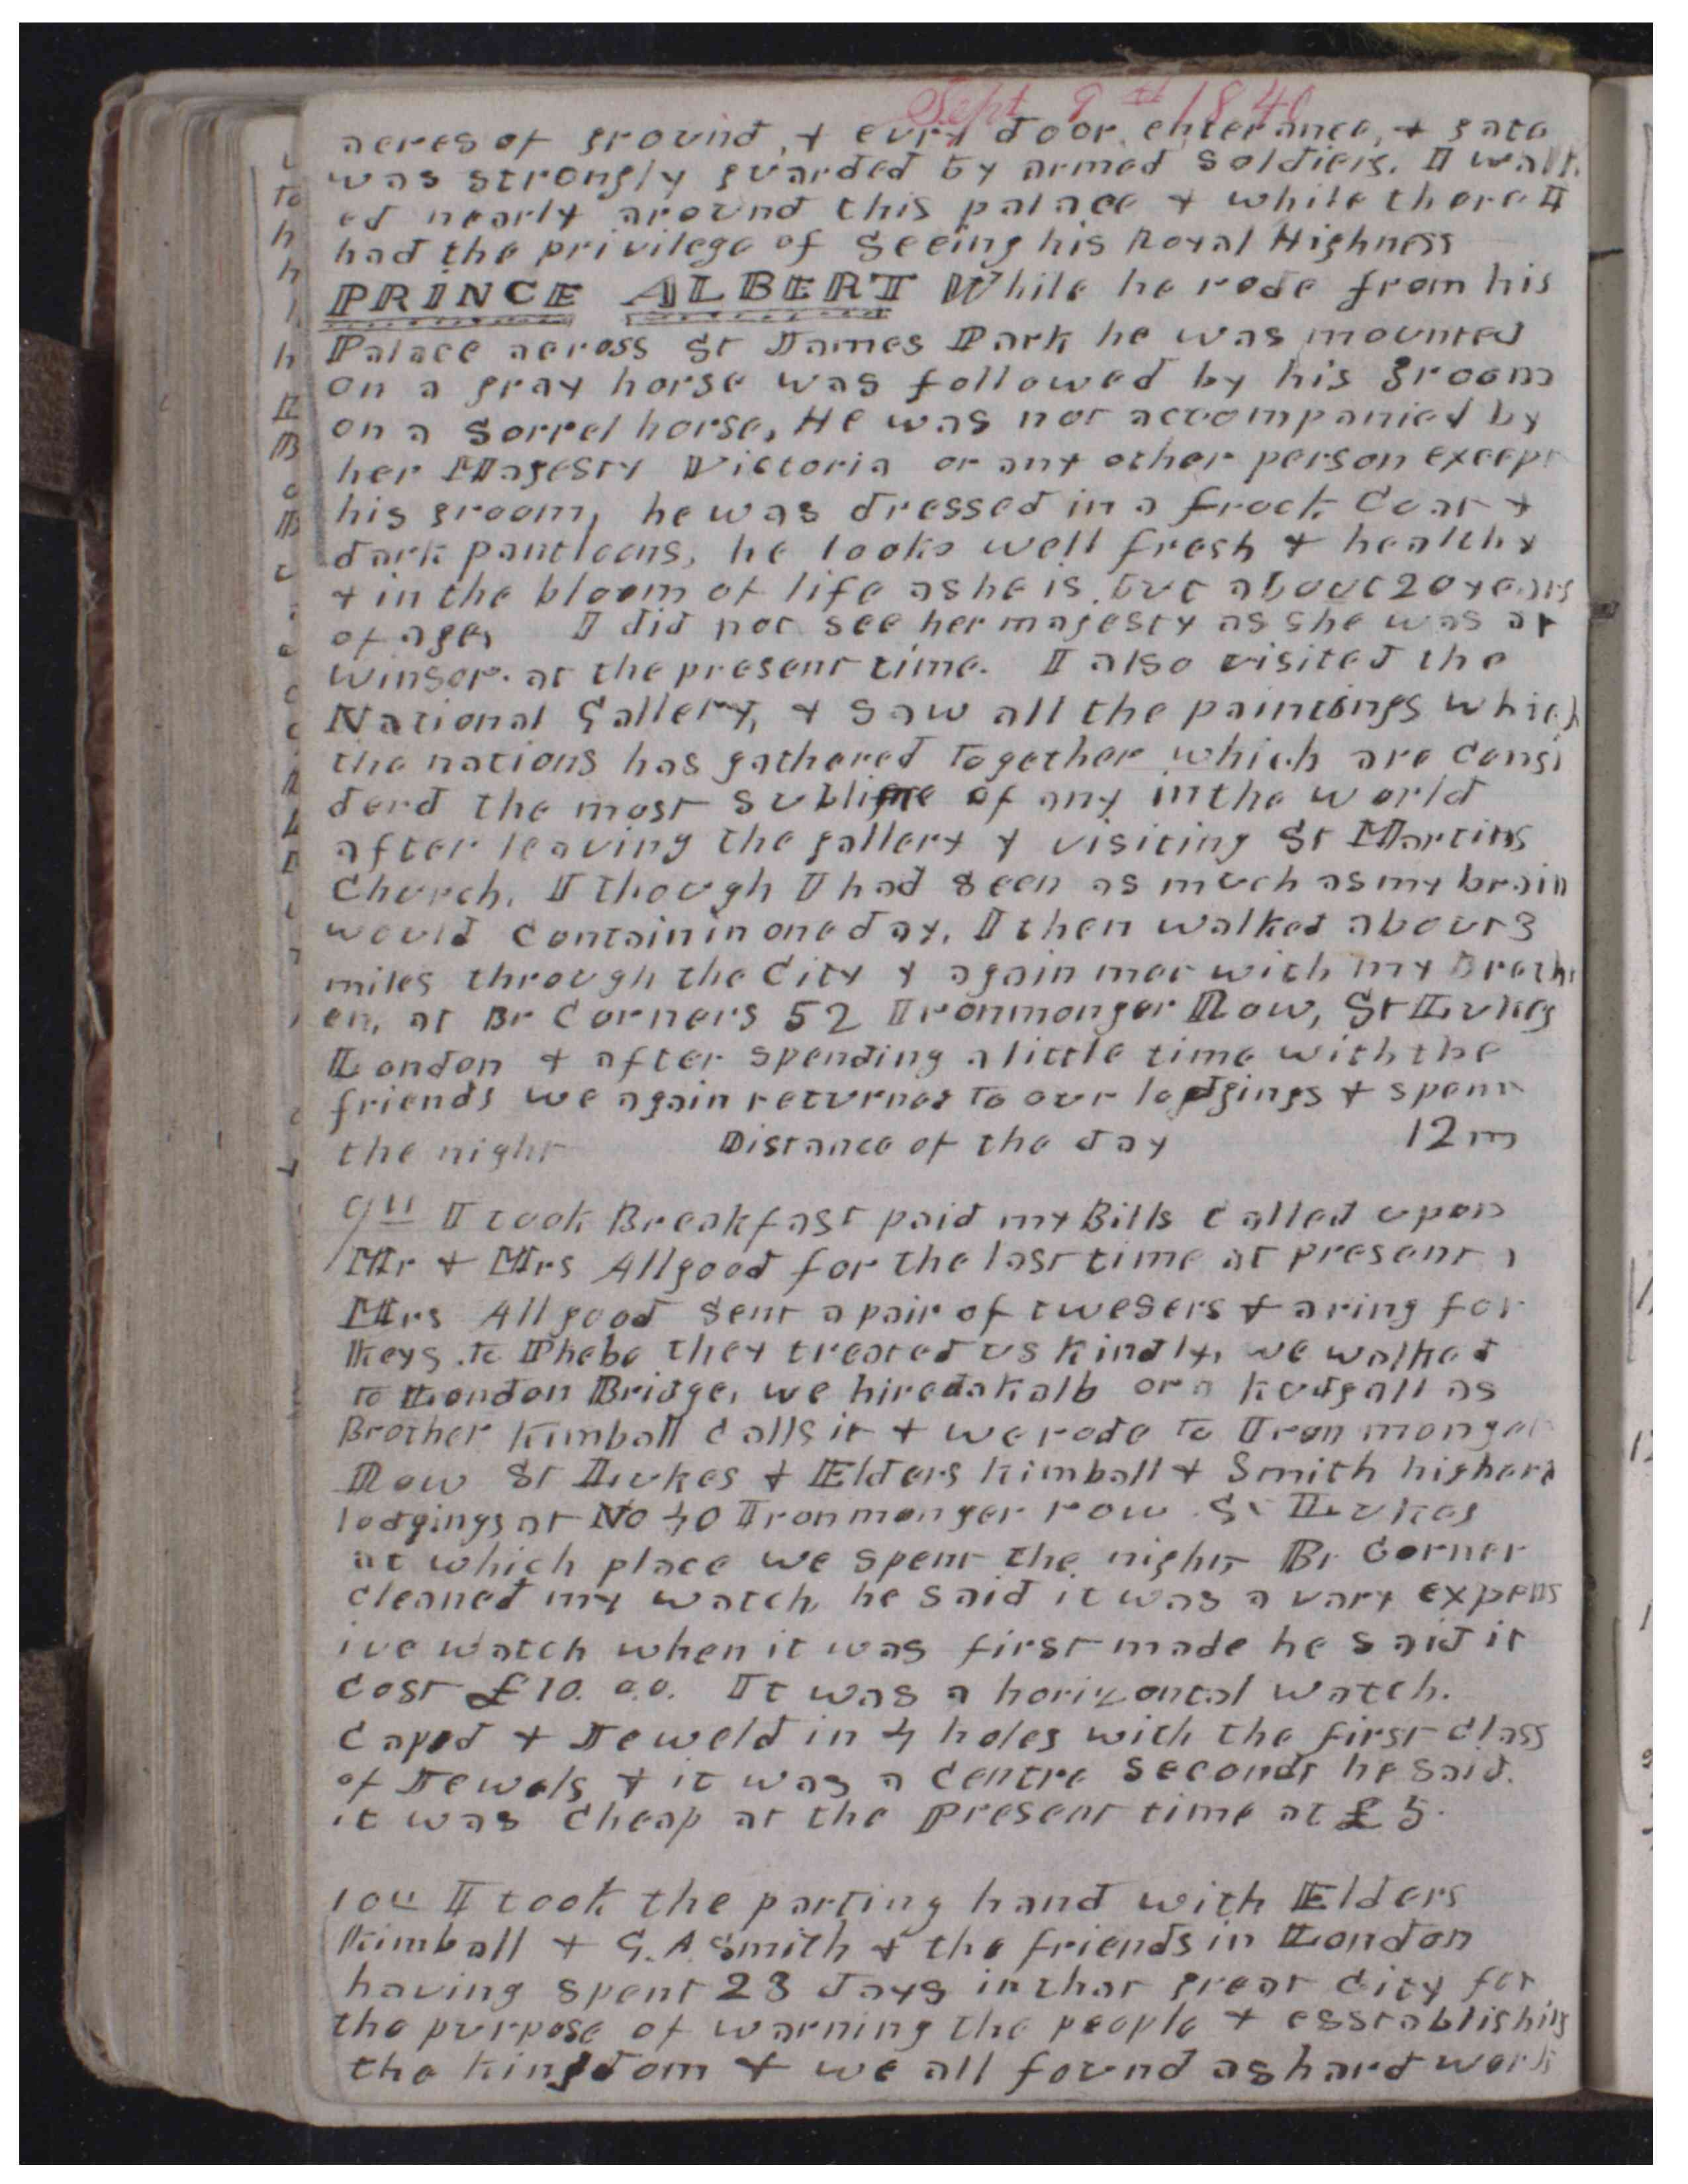 Sept 9th 1840
acres of ground, & evry door, enterance, & gate
was strongly guarded by armed Soldiers. I walk
ed nearly around this palace & while there I
had the privilege of Seeing his Royal Highness
PRINCE ALBERT While he rode from his
Palace across St James Park he was mounted
on a gray horse was followed by his groom
on a Sorrel horse, He was not accompanied by
her Magesty Victoria or any other person except
his groom, he was dressed in a frock Coat &
dark pantloons, he looks well fresh & healthy
& in the bloom of life as he is but about 20 years
of age, I did not see her magesty as she was at
Winsor. at the present time. I also visited the
National Gallery, & Saw all the paintings which
the nations has gathered together which are Consi
derd the most Sublime of any in the world
after leaving the gallery & visiting St Martins
Church. I though I had Seen as much as my brain
would Contain in one day. I then walked about 3
miles through the City & again met with my Breth
en, at Br Corners 52 Ironmonger Row, St Lukes
London & after spending a little time with the
friends we again returned to our lodgings & spent
the night Distance of the day 12 m
9th I took Breakfast paid my Bills Called upon
Mr & Mrs Allgood for the last time at present,
Mrs Allgood Sent a pair of twesers & a ring for
Keys to Phebe they treated us kindly, we walked
to London Bridge, we hired a Kalb or a kudgall as
Brother Kimball Calls it & we rode to Iron monger
Row St Lukes & Elders Kimball & Smith higherd
lodgings at No 40 Ironmonger row St Lukes
at which place we spent the night, Br Corner
Cleaned my watch, he Said it was a vary expens
ive watch when it was first made he said it
Cost £10. 0.0. It was a horizontal watch.
Caped & Jeweld in 4 holes with the first Class
of Jewels & it was a Centre Seconds he Said.
it was Cheap at the present time at £5.
10th I took the parting hand with Elders
Kimball & G. A. Smith & the friends in London
having spent 23 days in that great City for
the purpose of warning the people & esstablishing
the kingdom & we all found as hard work